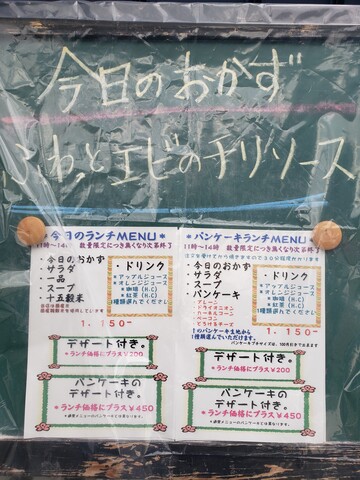 今日のおかず
ふわっとエビのチリソース
*今日のランチMENU*
11時〜14時 数量限定につき無くなり次第終了
・今日のおかず
・サラダ
・一品
・スープ
・十五穀米
・ドリンク
*アップルジュース
*オレンジジュース
*珈琲(H.C)
*紅茶(H.C)
1種類選んでください
1,150-
デザート付き。
*ランチ価格にプラス¥200
パンケーキの
デザート付き。
*ランチ価格にプラス¥450
*パンケーキランチMENU*
11時〜14時 数量限定につき無くなり次第終了
・今日のおかず
・サラダ
・スープ
・パンケーキ
プレーン
ドライオニオン
カー&コーン
ベーコン
とろけるチーズ
・ドリンク
*アップルジュース
*オレンジジュース
*珈琲(H.C)
*紅茶(H.C)
1種類選んでください
↑のパンケーキ生地から
1種類選んでいただけます。
1,150-
デザート付き。
*ランチ価格にプラス¥200
パンケーキの
デザート付き。
*ランチ価格にプラス¥450